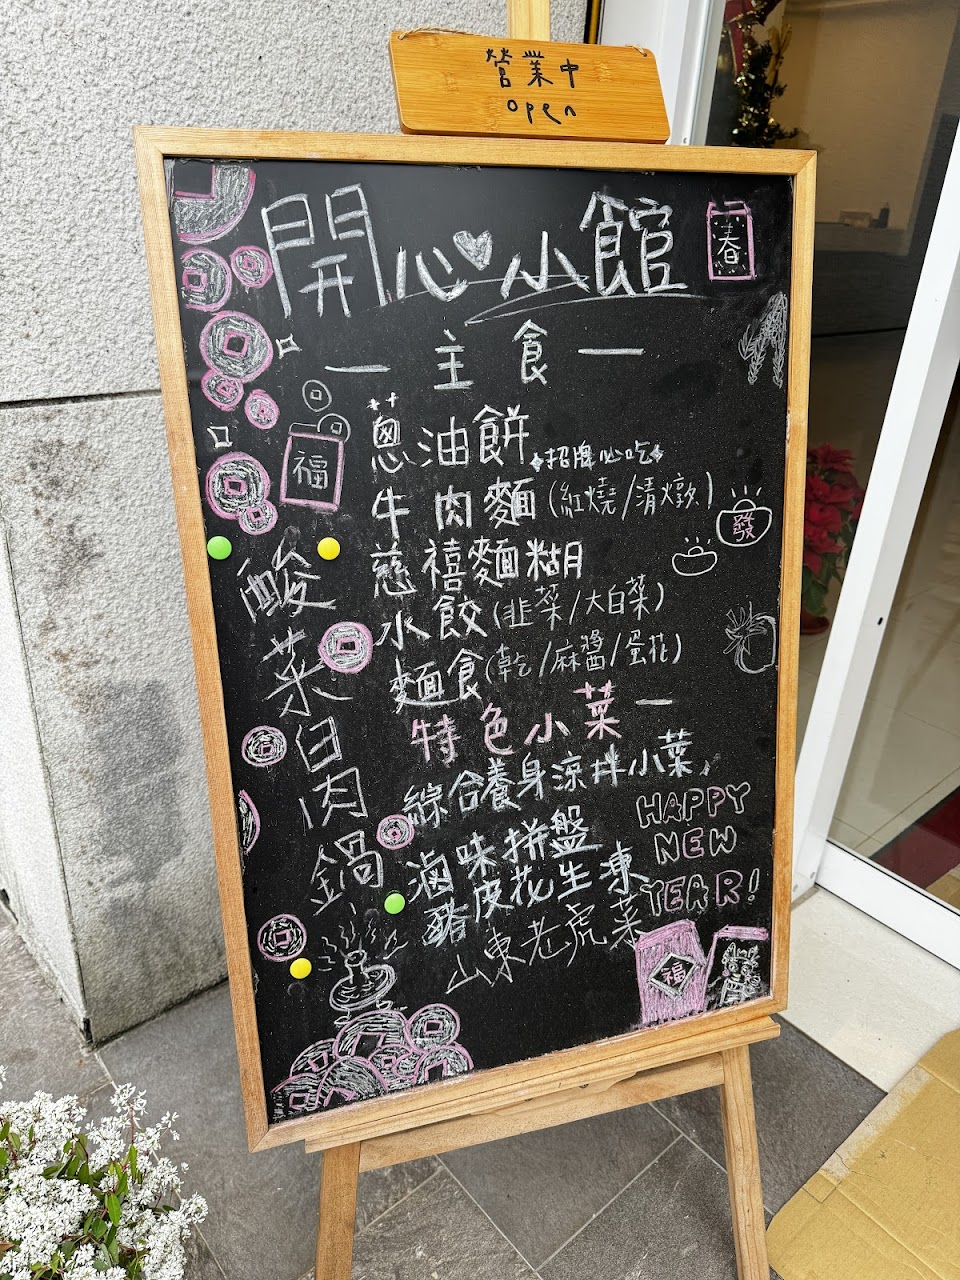 營業中
open
開心小館
春
主食
蔥油餅 招牌必吃
福
牛肉麵(紅燒/清燉)
發
慈禧麵糊
水餃(韭菜/大白菜)
麵食(乾/麻醬/蛋花)
酸菜白肉鍋
特色小菜
綜合養身涼拌小菜
滷味拼盤
豬皮花生凍
山東老虎菜
HAPPY
NEW
YEAR!
福